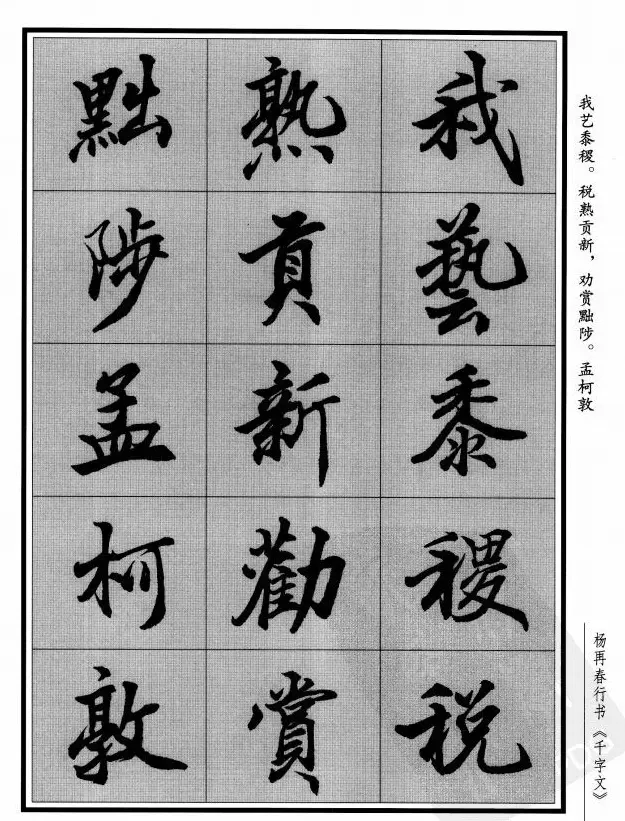 我藝黍稷税
熟貢新勸賞
黜陟孟柯敦
我艺黍稷。税熟贡新，劝赏黜陟。孟柯敦
杨再春行书《千字文》